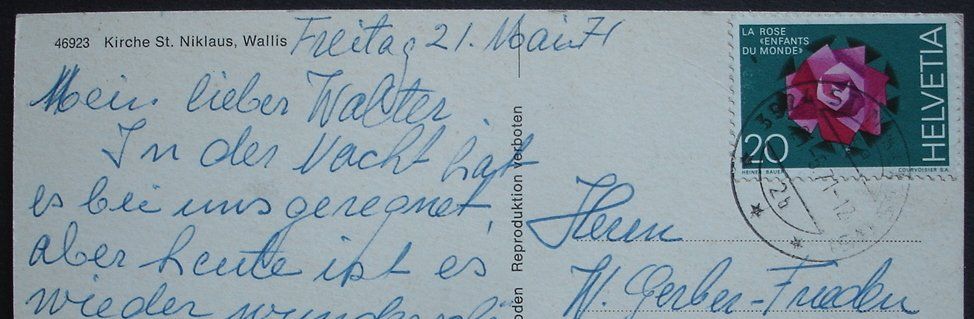 46923 Kirche St. Niklaus, Wallis
Freitag 21. Mai 71
Mein lieber Walter
In der Nacht hat
es bei uns geregnet,
aber heute ist es
wieder
Reproduktion verboten
LA ROSE
«ENFANTS
DU MONDE»
HELVETIA
20
HEINER BAUER
COURVOISIER S.A.
3924
Herrn
W. Gerber-Frieden